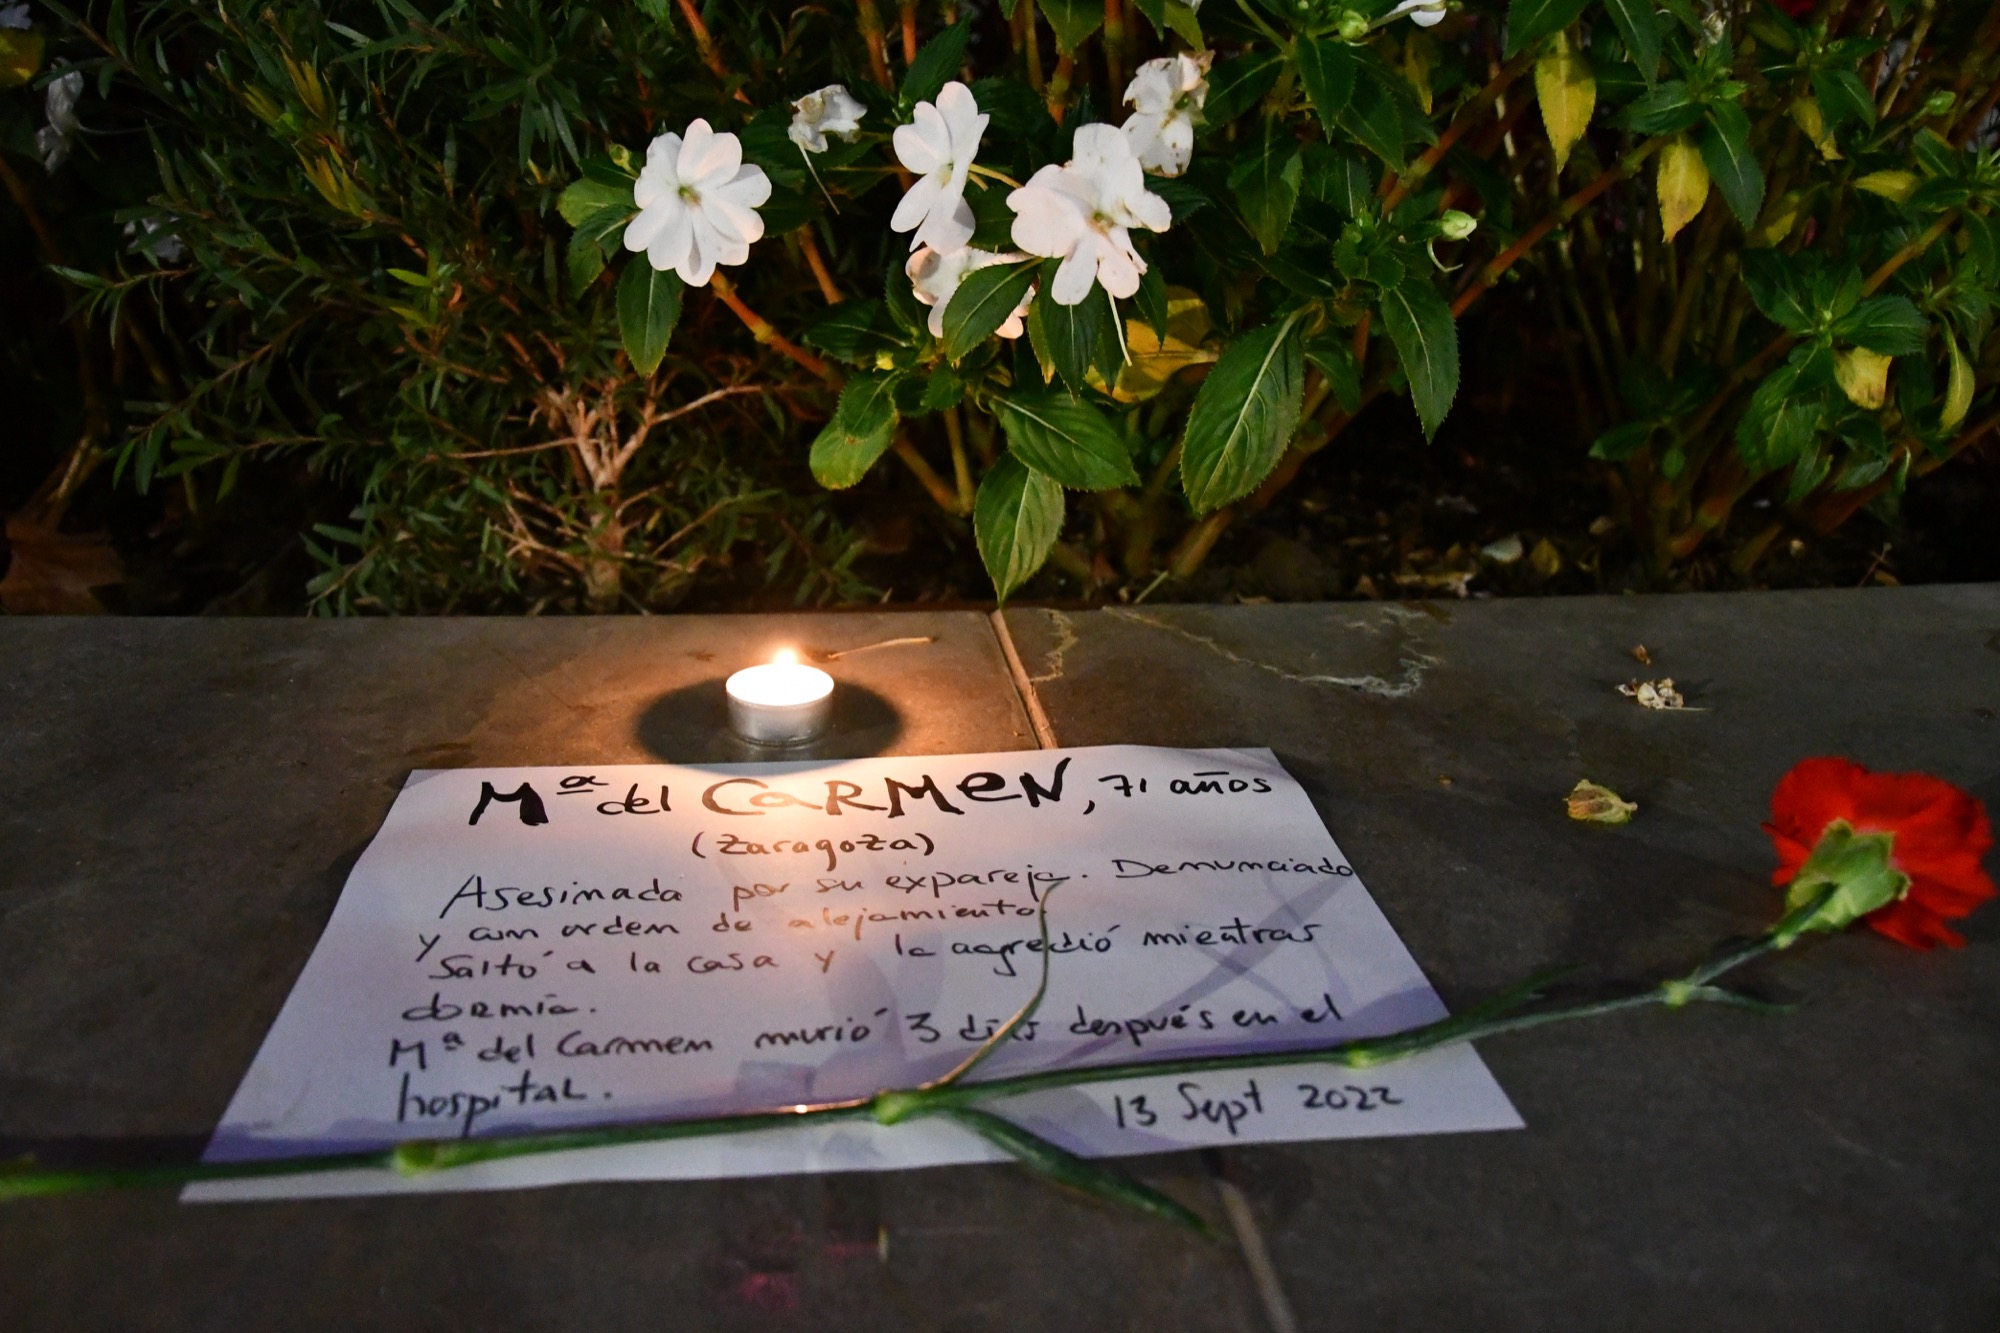 Mª del CARMEN, 71 años
(Zaragoza)
Asesinada por su expareja. Denunciado
y con orden de alejamiento
Saltó a la casa y la agredió mientras
dormía.
Mª del Carmen murió 3 días después en el
hospital.
13 Sept 2022